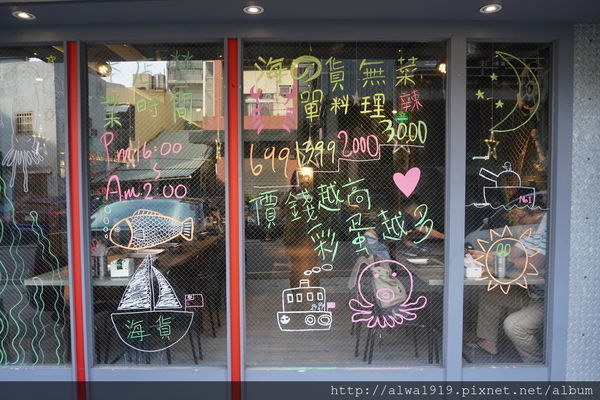 營
業時間
P.m 16:00
~
A.m 2:00
海の貨無菜
單料理.辣
699 1399 2000 3000
價錢越高
彩蛋越多
海貨
No.1
http://alwa1919.pixnet.net/album